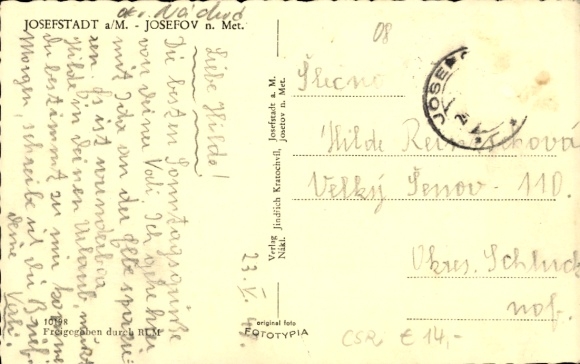 okr. Náchod
JOSEFSTADT a/M. - JOSEFOV n. Met.
Liebe Hilde!
Die besten Sonntagsgrüße
von deiner Vali. Ich gehe hier
mit Ida an der Elbe spazie-
ren. Es ist wunderbar
Hilde in deinen Urlaub, mußt
Du bestimmt zu mir kommen
Morgen, schreibe ich dir Brief.
Deine Vali.
23. V.
10198
Freigegeben durch RLM
Verlag Jindřich Kratochvíl, Josefstadt a. M.
Nákl. Josefov n. Met.
original foto
FOTOTYPIA
08
JOSEFO
Slečna
Hilde
Velký Šenov - 110.
Okres. Schluck
nof.
ČSR € 14,-